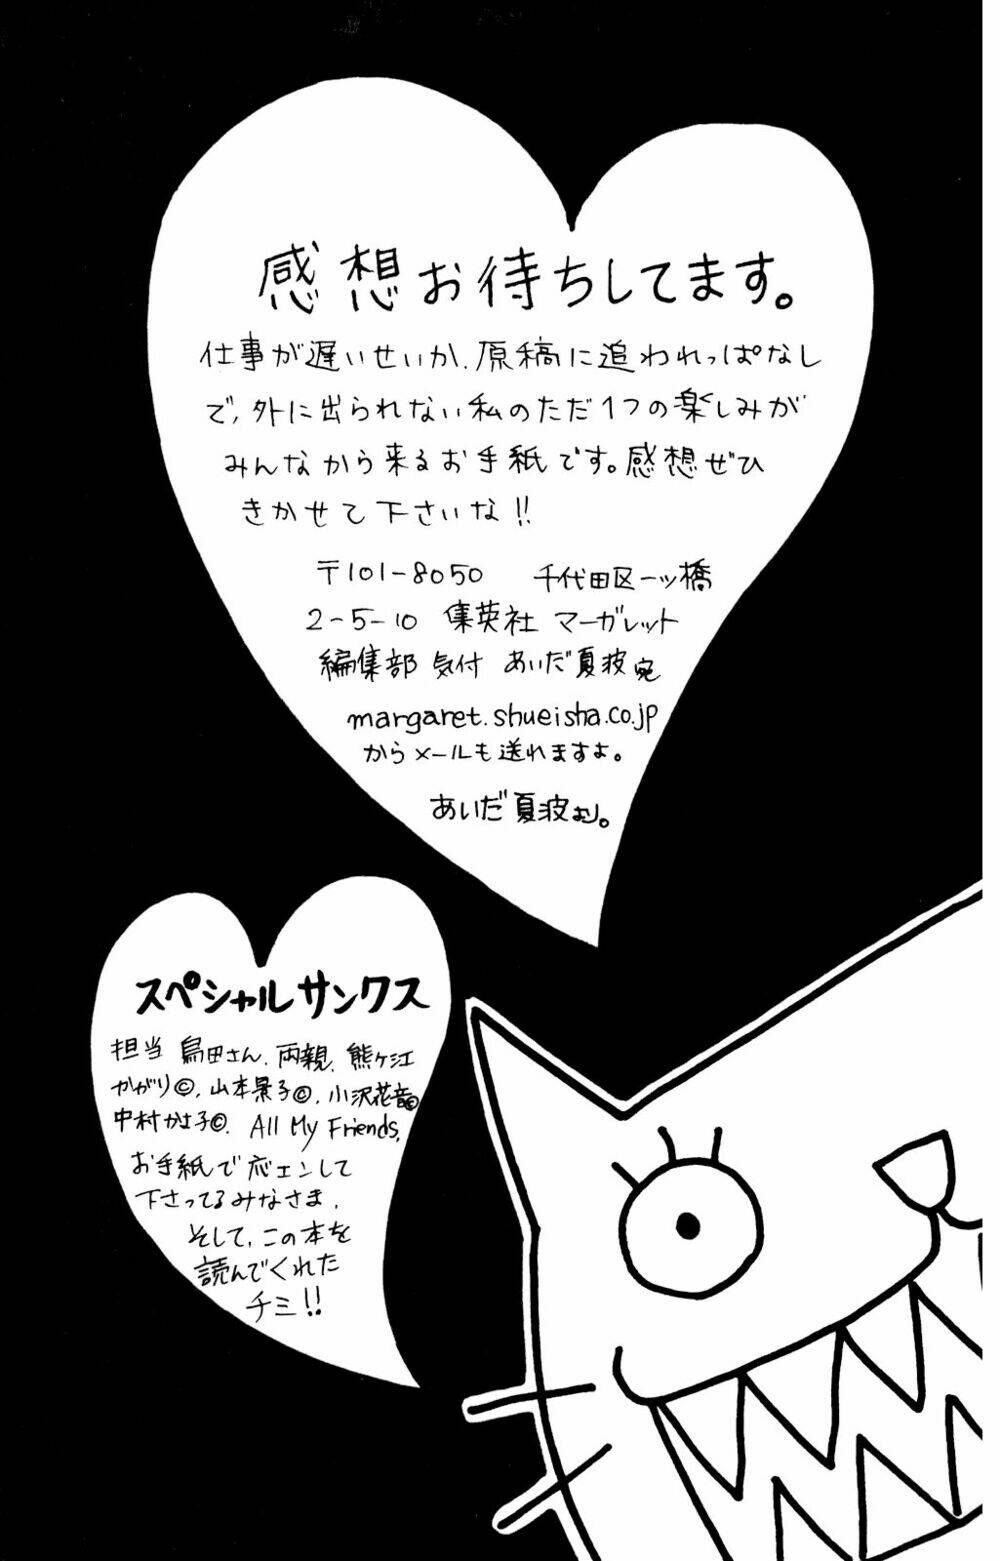 感想お待ちしてます。
仕事が遅いせいか、原稿に追われっぱなし
で、外に出られない私のただ1つの楽しみが
みんなから来るお手紙です。感想ぜひ
きかせて下さいな!!
〒101-8050 千代田区一ツ橋
2-5-10 集英社 マーガレット
編集部 気付 あいだ夏波 宛
margaret.shueisha.co.jp
からメールも送れますよ。
あいだ夏波より。
スペシャルサンクス
担当 鳥田さん、両親、熊ヶ江
かがり©、山本景子©、小沢花音©
中村かさ子©、All My Friends,
お手紙で応エンして
下さってるみなさま、
そして、この本を
読んでくれた
チミ!!